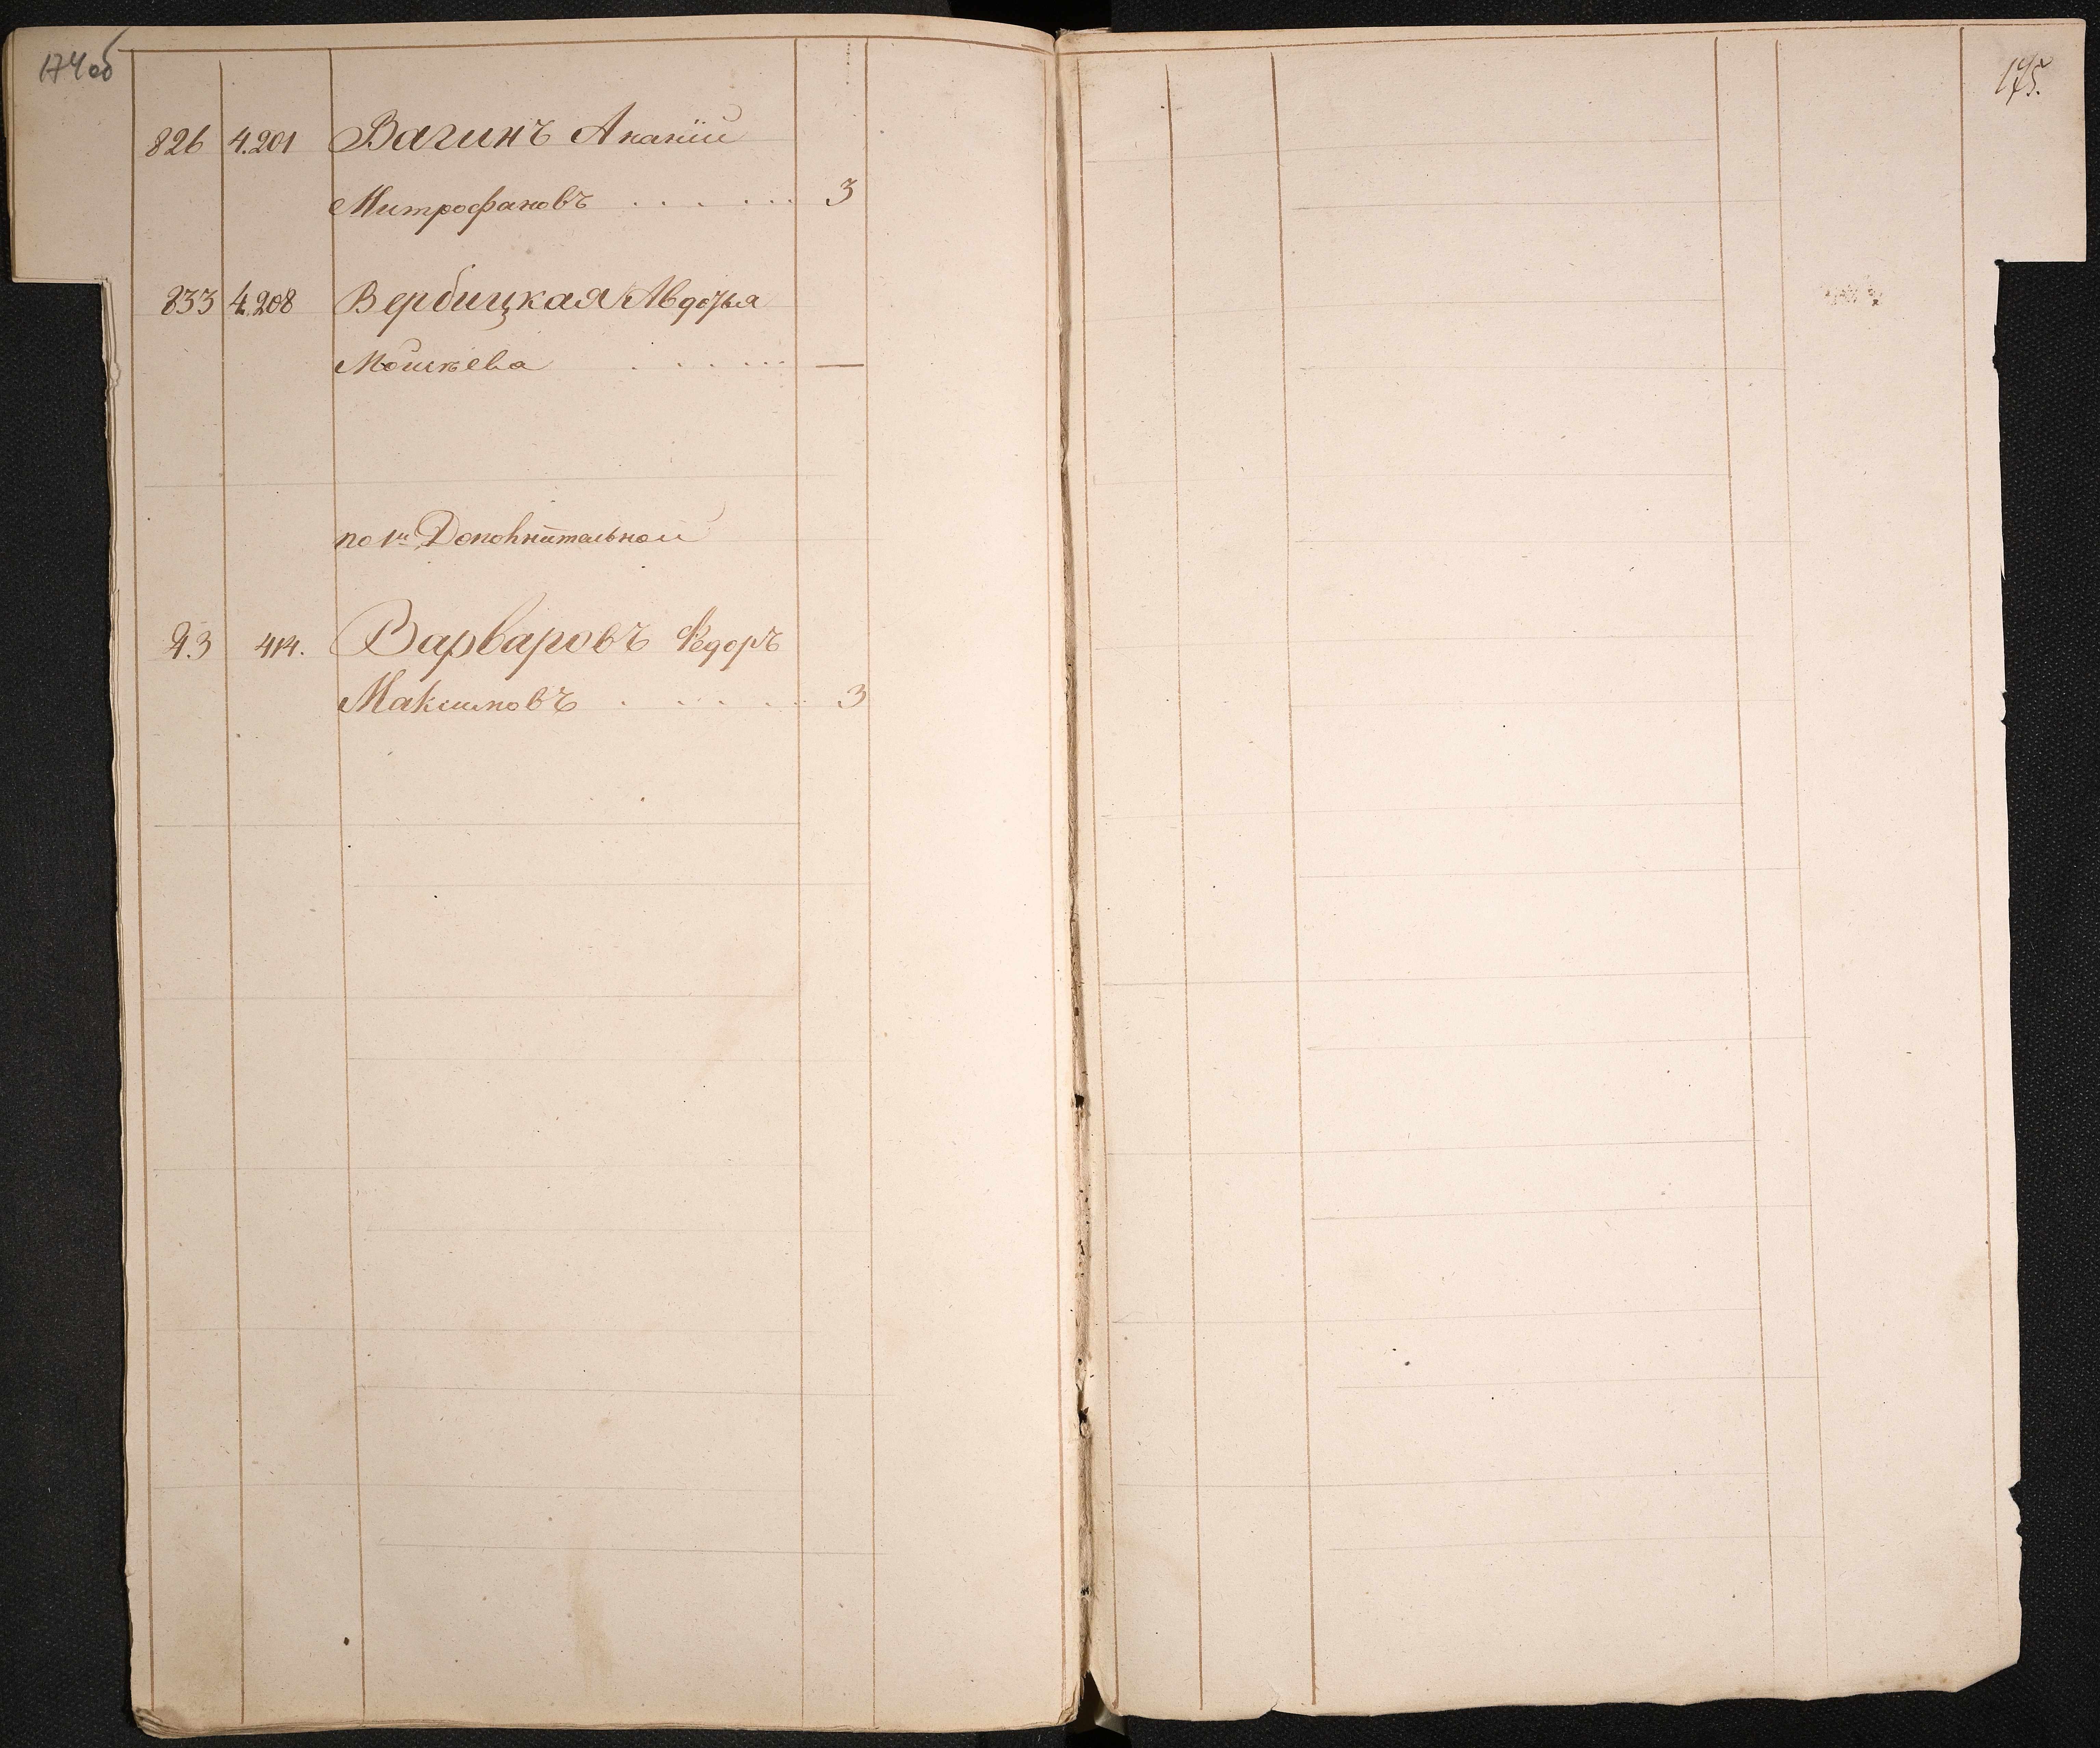 174 об
826 4.201 Вагинъ Ананiй
Митрофановъ . . . . . . 3
833 4.208 Вербицкая Авдотья
Моисѣева . . . . . . —
по 1й Дополнительной
93 414. Варваровъ Федоръ
Максимовъ . . . . . . 3
175.